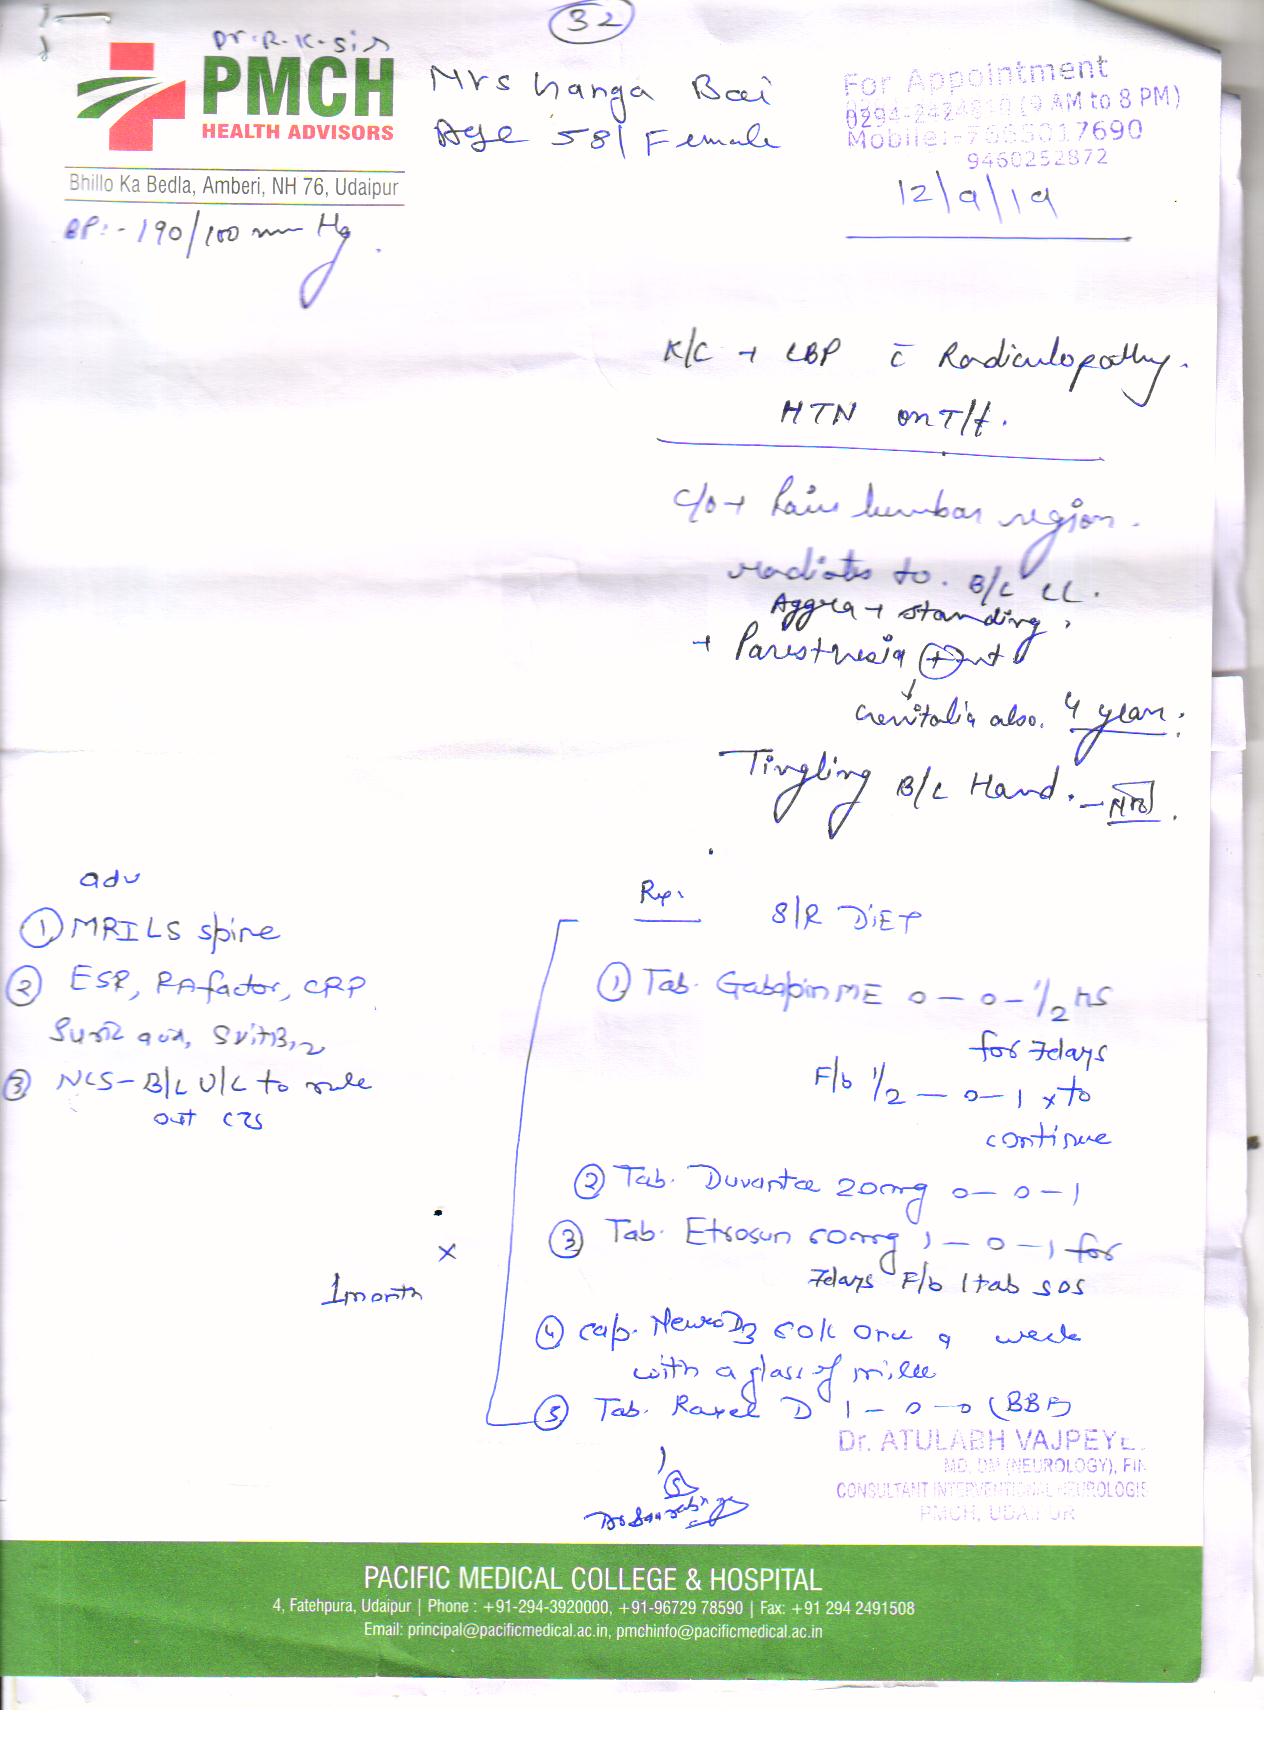 32
Dr. R. K. Sir
PMCH
HEALTH ADVISORS
Bhillo Ka Bedla, Amberi, NH 76, Udaipur
Mrs Bai
Age 58/Female
For Appointment
(9 AM to 8 PM)
Mobile:- 17690
9460252872
12/9/19
BP:- 190/100 mm Hg.
K/C → LBP c̄ Radiculopathy.
HTN on T/t.
C/o → Pain lumbar region.
radiates to. B/L LL.
Aggra → standing,
→ Paresthesia (+)nt
↓
Genitalia also. 4 year.
Tingling B/L Hand. –
adv
① MRI LS spine
② ESR, RA factor, CRP
S uric acid, S vit B12
③ NCS – B/L U/L to rule
out CTS
Rx.
S/R DIET
① Tab. Gabapin ME 0 – 0 – 1/2 HS
for 7days
F/b 1/2 – 0 – 1 x to
continue
② Tab. Duvanta 20mg 0 – 0 – 1
③ Tab. Etrosun 60mg 1 – 0 – 1 for
7days F/b 1 tab SOS
④ Cap. Neuro D3 60K once a week
with a glass of milk
⑤ Tab. D 1 – 0 – 0 (BBF)
x
1 month
Dr. ATULABH VAJPEYE
MD, DM (NEUROLOGY), FIN
CONSULTANT INTERVENTIONAL NEUROLOGIS
PMCH, UDAIPUR
PACIFIC MEDICAL COLLEGE & HOSPITAL
4, Fatehpura, Udaipur | Phone : +91-294-3920000, +91-96729 78590 | Fax: +91 294 2491508
Email: principal@pacificmedical.ac.in, pmchinfo@pacificmedical.ac.in